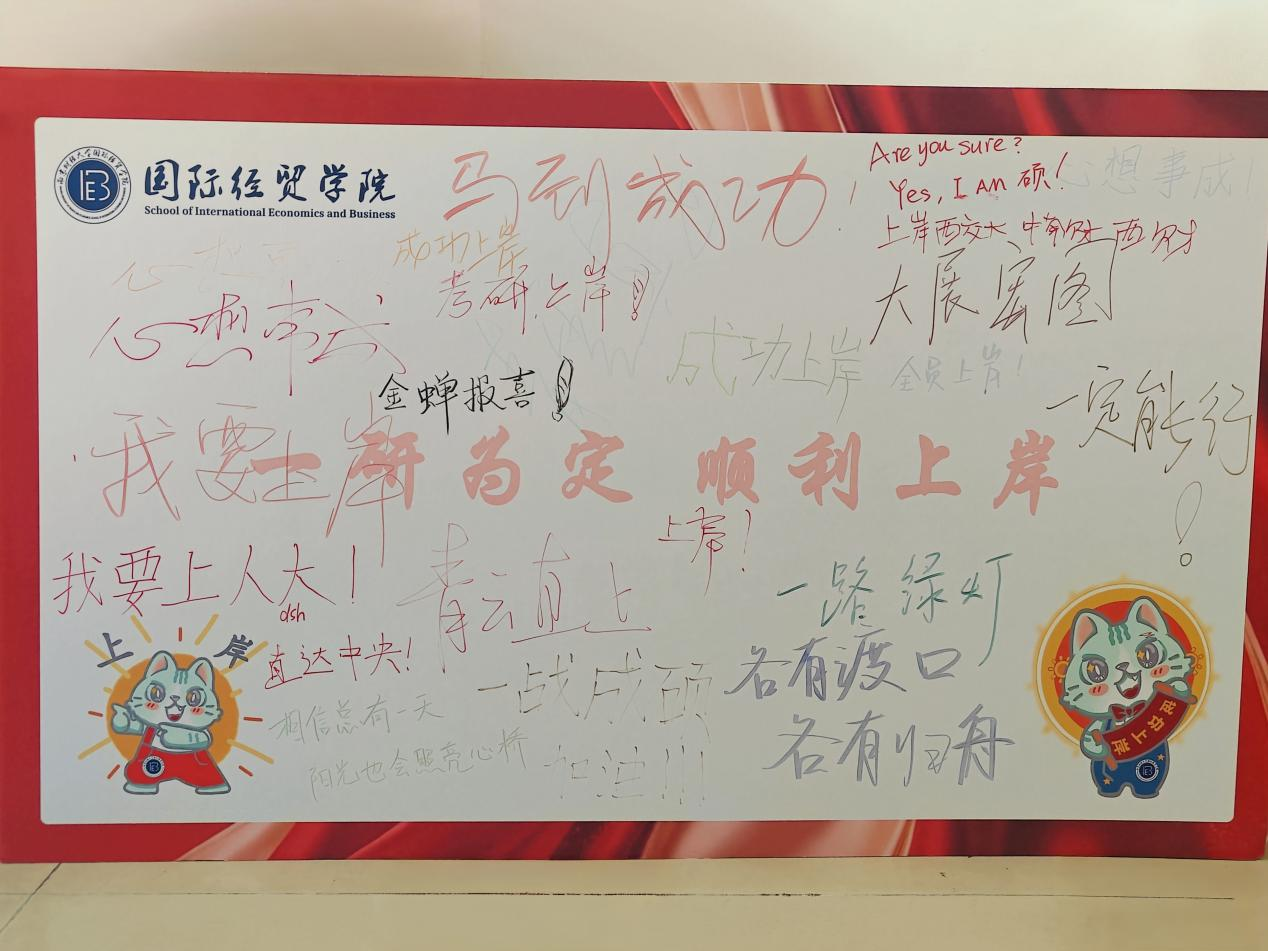 国际经贸学院
School of International Economics and Business
马到成功！
Are you sure?
Yes, I AM 硕！
上岸西交大 中南财大 西财
心想事成！
成功上岸
考研上岸！
心想事成
大展宏图
成功上岸
全员上岸！
金蝉报喜！
一定能行！
我要上岸
一研为定 顺利上岸
上岸！
我要上人大！
dsh
直达中央！
青云直上
一路绿灯
各有渡口
各有归舟
一战成硕
加油!!!
相信总有一天
阳光也会照亮心桥
上岸
成功上岸